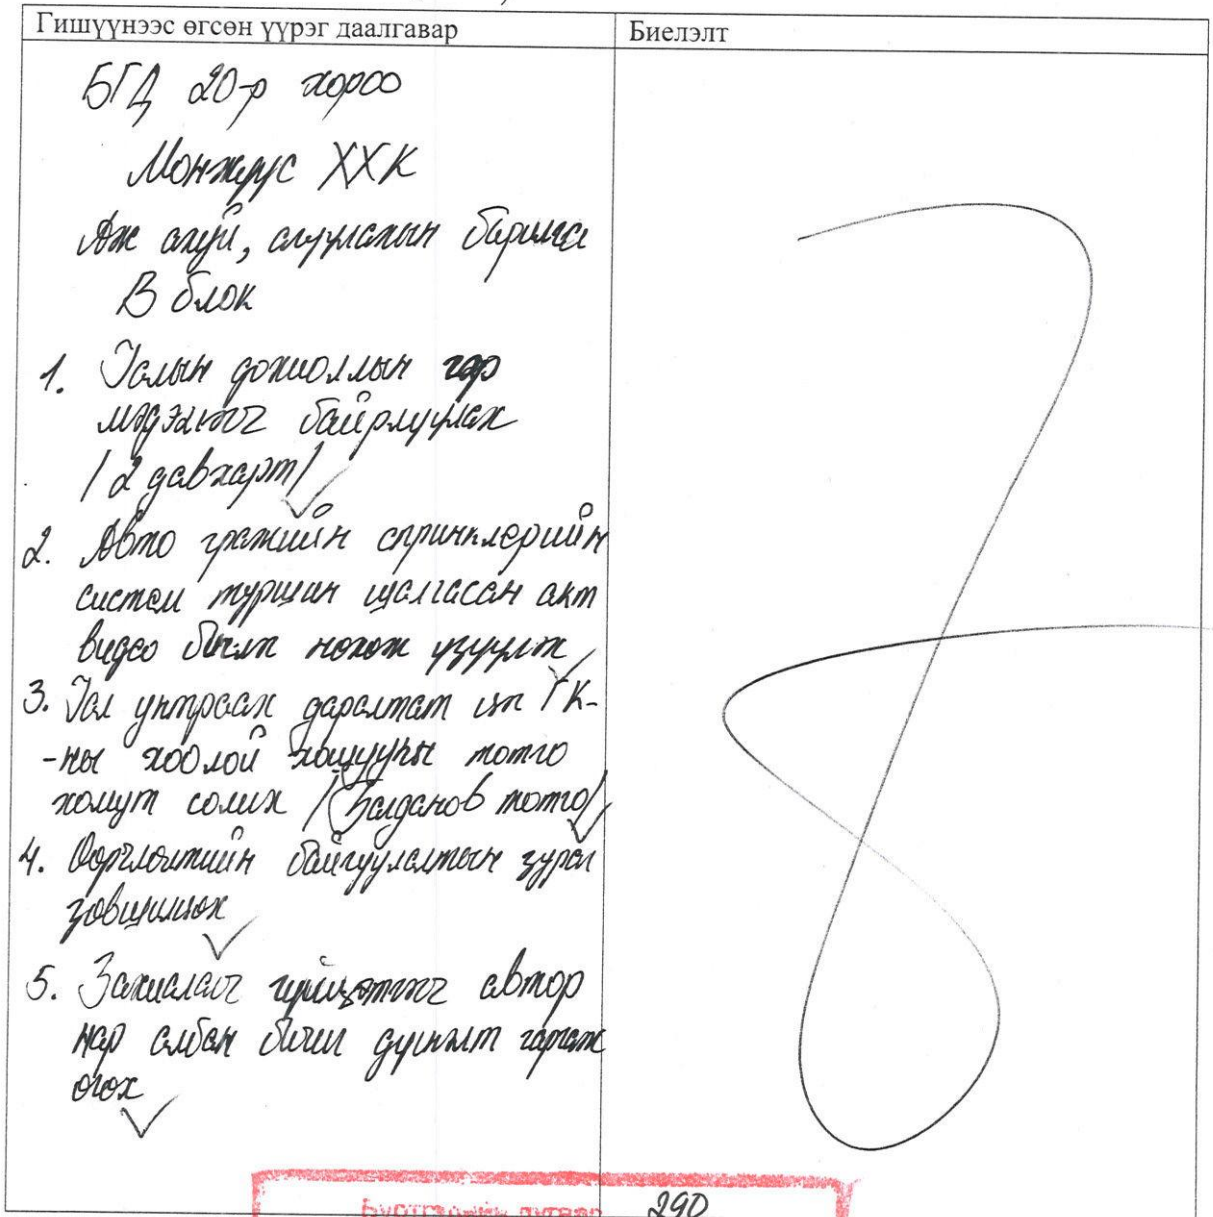 Гишүүнээс өгсөн үүрэг даалгавар
Биелэлт
БГД 20-р хороо
Монжуус ХХК
Аж ахуй, агуулахын барилга
В блок
1. Галын дохиоллын гар
мэдээлэгч байрлуулах
/2 давхарт/
2. Авто гражийн спринклерийн
систем туршин шалгасан акт
видео бичлэг нөхөж үзүүлэх
3. Гал унтраах даралтат ГК-
-ны хоолой хошууны тотго
хомут солих /Багданов тотго/
4. Өөрчлөлтийн байгуулалтын зураг
зөвшилцөх
5. Захиалагч гүйцэтгэгч автор
нар албан бичиг дүгнэлт гаргаж
өгөх
Бүртгэлийн дугаар 290